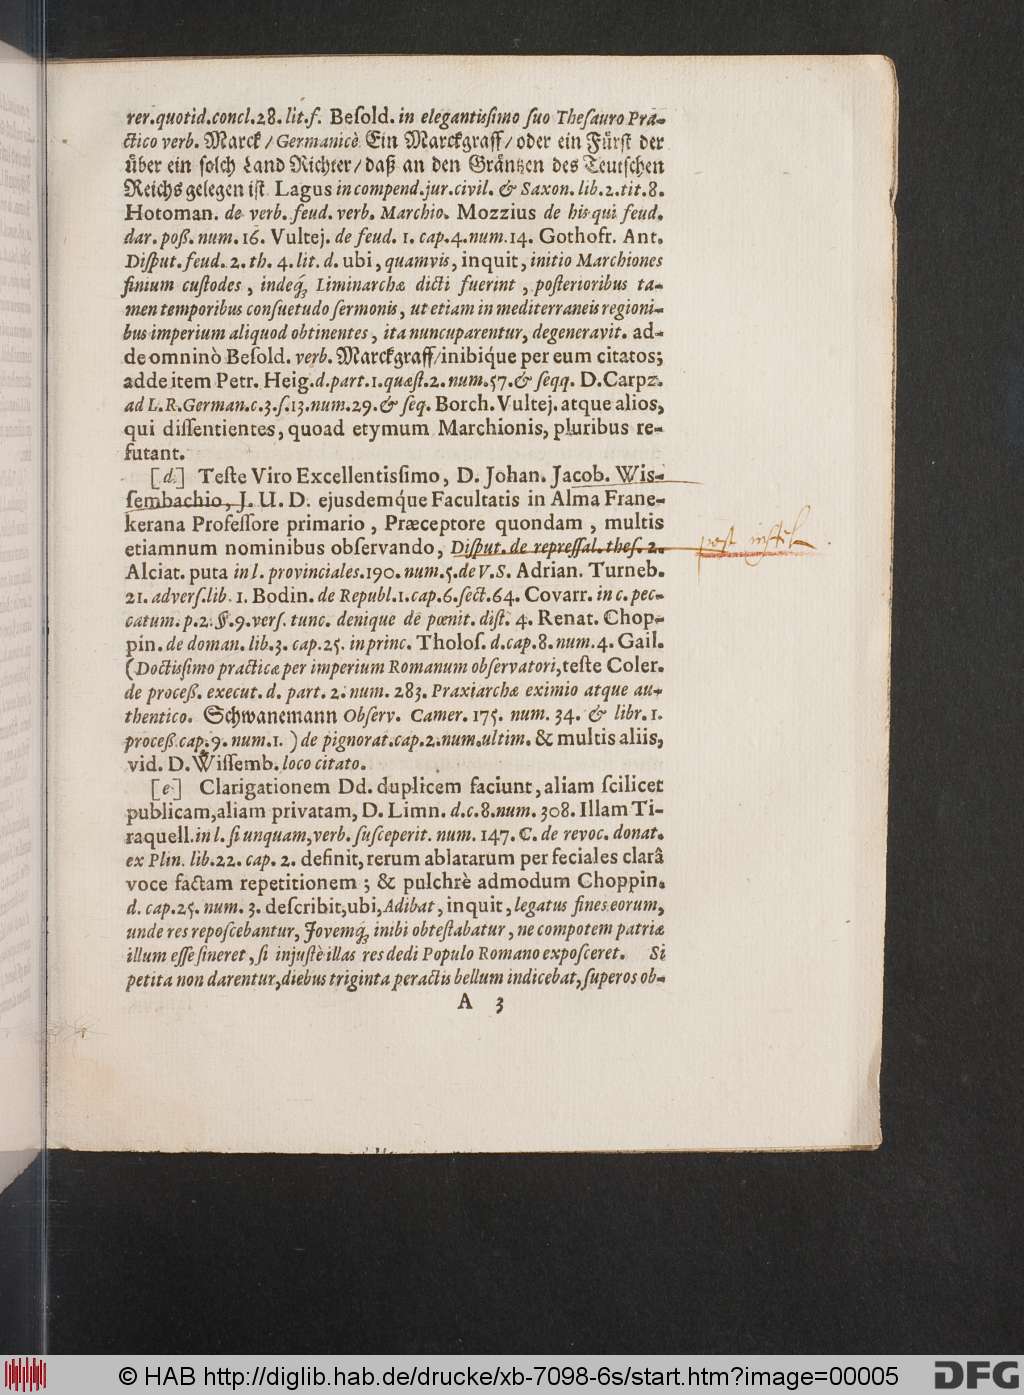 rer.quotid.concl.28.lit.f. Beſold. in elegantiſsimo ſuo Theſauro Pra-
ctico verb. Marck / Germanicè Ein Marckgraff / oder ein Fürſt der
über ein ſolch Land Richter / daß an den Gräntzen des Teutſchen
Reichs gelegen iſt Lagus in compend.jur.civil. & Saxon. lib.2.tit.8.
Hotoman. de verb. feud. verb. Marchio. Mozzius de his qui feud.
dar. poß. num. 16. Vultej. de feud. 1. cap.4.num.14. Gothofr. Ant.
Diſput. feud. 2. th. 4. lit. d. ubi, quamvis, inquit, initio Marchiones
finium cuſtodes, indeq́; Liminarchæ dicti fuerint, poſterioribus ta-
men temporibus conſuetudo ſermonis, ut etiam in mediterraneis regioni-
bus imperium aliquod obtinentes, ita nuncuparentur, degeneravit. ad-
de omninò Beſold. verb. Marckgraff/inibiq́ue per eum citatos;
adde item Petr. Heig.d.part.1.quæſt.2.num.57.& ſeqq. D.Carpz.
ad L.R.German.c.3.ſ.13.num.29.& ſeq. Borch. Vultej. atque alios,
qui diſſentientes, quoad etymum Marchionis, pluribus re-
futant.
[d] Teſte Viro Excellentiſſimo, D. Johan. Jacob. Wiſ-
ſembachio, J. U. D. ejusdemq́ue Facultatis in Alma Frane-
kerana Profeſſore primario, Præceptore quondam, multis
etiamnum nominibus obſervando, Diſput. de repreſſal. theſ. 2.
Alciat. puta in l. provinciales.190.num.5.de V.S. Adrian. Turneb.
21. adverſ.lib. 1. Bodin. de Republ.1.cap.6.ſect.64. Covarr. in c. pec-
catum. p.2. §.9.verſ. tunc. denique de pœnit. diſt. 4. Renat. Chop-
pin. de doman. lib.3. cap.25. in princ. Tholoſ. d.cap.8.num.4. Gail.
(Doctiſsimo practicæ per imperium Romanum obſervatori, teſte Coler.
de proceß. execut. d. part. 2. num. 283. Praxiarchæ eximio atque au-
thentico. Schwanemann Obſerv. Camer. 175. num. 34. & libr. 1.
proceß.cap.9. num.1. ) de pignorat.cap.2.num.ultim. & multis aliis,
vid. D. Wiſſemb. loco citato.
[e] Clarigationem Dd. duplicem faciunt, aliam ſcilicet
publicam, aliam privatam, D. Limn. d.c.8.num. 308. Illam Ti-
raquell. in l. ſi unquam, verb. ſuſceperit. num. 147. C. de revoc. donat.
ex Plin. lib.22. cap. 2. definit, rerum ablatarum per feciales clarâ
voce factam repetitionem; & pulchrè admodum Choppin.
d. cap.25. num. 3. deſcribit, ubi, Adibat, inquit, legatus fines eorum,
unde res repoſcebantur, Jovemq́; inibi obteſtabatur, ne compotem patriæ
illum eſſe ſineret, ſi injuſtè illas res dedi Populo Romano expoſceret. Si
petita non darentur, diebus triginta peractis bellum indicebat, ſuperos ob-
A 3
© HAB http://diglib.hab.de/drucke/xb-7098-6s/start.htm?image=00005
DFG